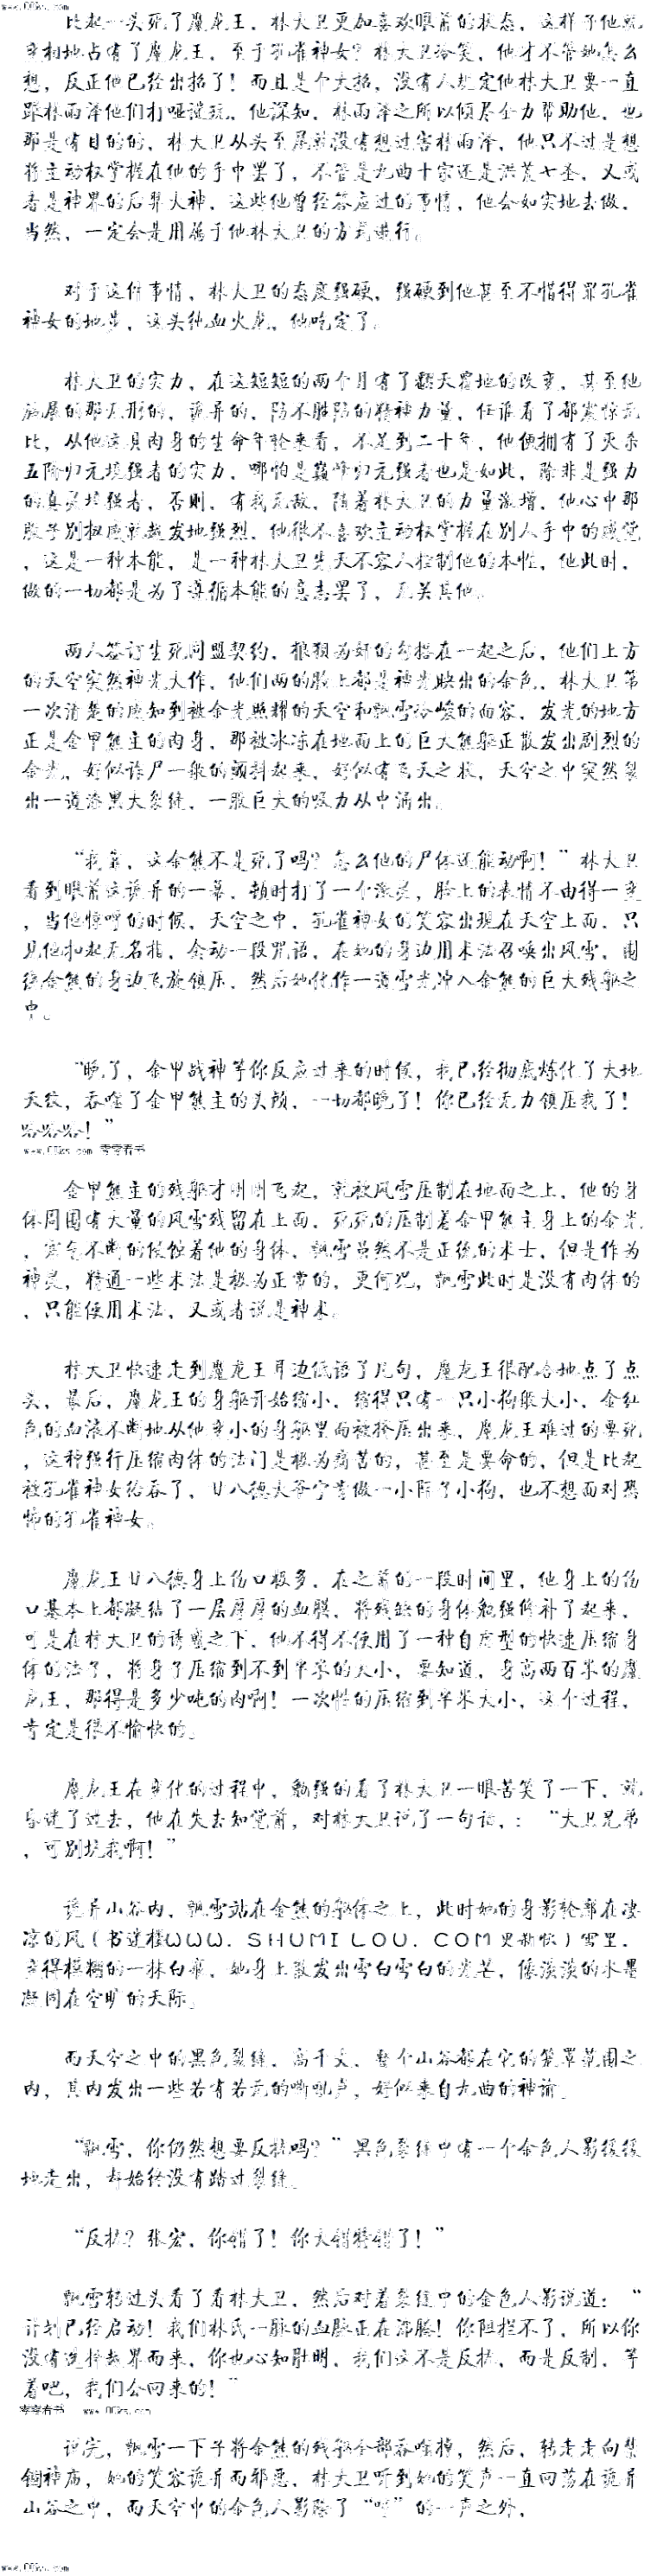 www.00ks.com
比起一头死了魔龙王，林大卫更加喜欢眼前的状态，这样子他就
变相地占有了魔龙王，至于孔雀神女？林大卫冷笑，他才不管她怎么
想，反正他已经出招了！而且是个大招，没有人规定他林大卫要一直
跟林雨泽他们打哑谜玩，他深知，林雨泽之所以倾尽全力帮助他，也
那是有目的的，林大卫从头至尾就没有想过害林雨泽，他只不过是想
将主动权掌握在他的手中罢了，不管是九曲十宗还是洪荒七圣，又或
者是神界的后羿大神，这些他曾经答应过的事情，他会如实地去做，
当然，一定会是用属于他林大卫的方式进行。
对于这件事情，林大卫的态度强硬，强硬到他甚至不惜得罪孔雀
神女的地步，这头纯血火龙，他吃定了。
林大卫的实力，在这短短的两个月有了翻天覆地的改变，甚至他
施展的那无形的，诡异的，防不胜防的精神力量，任谁看了都震惊无
比，从他这具肉身的生命年轮来看，不足到二十年，他便拥有了灭杀
五阶归元境强者的实力，哪怕是巅峰归元强者也是如此，除非是强力
的真灵境强者，否则，有我无敌，随着林大卫的力量激增，他心中那
股子别扭感就越发地强烈，他很不喜欢主动权掌握在别人手中的感觉
，这是一种本能，是一种林大卫先天不容人控制他的本性，他此时，
做的一切都是为了遵循本能的意志罢了，无关其他。
两人签订生死同盟契约，狼狈为奸的勾搭在一起之后，他们上方
的天空突然神光大作，他们两的脸上都是神光映出的金色，林大卫第
一次清楚的感知到被金光照耀的天空和飘雪冷峻的面容，发光的地方
正是金甲熊主的肉身，那被冰冻在地面上的巨大熊躯正散发出剧烈的
金光，好似诈尸一般的颤抖起来，好似有飞天之状，天空之中突然裂
出一道漆黑大裂缝，一股巨大的吸力从中涌出。
“我靠，这金熊不是死了吗？怎么他的尸体还能动啊！”林大卫
看到眼前这诡异的一幕，顿时打了一个激灵，脸上的表情不由得一变
，当他惊呼的时候，天空之中，孔雀神女的笑容出现在天空上面，只
见他扣起无名指，念动一段咒语，在她的身边用术法召唤出风雪，围
绕金熊的身边飞旋镇压，然后她化作一道雪光冲入金熊的巨大残躯之
中。
“晚了，金甲战神等你反应过来的时候，我已经彻底炼化了大地
天纹，吞噬了金甲熊主的头颅，一切都晚了！你已经无力镇压我了！
哈哈哈！”
www.00ks.com 零零看书
金甲熊主的残躯才刚刚飞起，就被风雪压制在地面之上，他的身
体周围有大量的风雪残留在上面，死死的压制着金甲熊主身上的金光
，寒气不断的侵蚀着他的身体，飘雪虽然不是正统的术士，但是作为
神灵，精通一些术法是极为正常的，更何况，飘雪此时是没有肉体的
，只能使用术法，又或者说是神术。
林大卫快速走到魔龙王耳边低语了几句，魔龙王很配合地点了点
头，最后，魔龙王的身躯开始缩小，缩得只有一只小狗般大小，金红
色的血液不断地从他变小的身躯里面被挤压出来，魔龙王难过的要死
，这种强行压缩肉体的法门是极为痛苦的，甚至是要命的，但是比起
被孔雀神女给吞了，廿八德大爷宁肯做一小阵子小狗，也不想面对恐
怖的孔雀神女。
魔龙王廿八德身上伤口极多，在之前的一段时间里，他身上的伤
口基本上都凝结了一层厚厚的血膜，将残缺的身体勉强修补了起来，
可是在林大卫的诱惑之下，他不得不使用了一种自虐型的快速压缩身
体的法子，将身子压缩到不到半米的大小，要知道，身高两百米的魔
龙王，那得是多少吨的肉啊！一次性的压缩到半米大小，这个过程，
肯定是很不愉快的。
魔龙王在变化的过程中，勉强的看了林大卫一眼苦笑了一下，就
昏迷了过去，他在失去知觉前，对林大卫说了一句话，：“大卫兄弟
，可别坑我啊！”
诡异山谷内，飘雪站在金熊的躯体之上，此时她的身影轮廓在凄
凉的风（书迷楼ＷＷＷ．ＳＨＵＭＩＬＯＵ．ＣＯＭ更新快）雪里，
变得模糊的一抹白痕，她身上散发出雪白雪白的光芒，像淡淡的水墨
凝固在空旷的天际。
而天空之中的黑色裂缝，高千丈，整个山谷都在它的笼罩范围之
内，其内发出一些若有若无的嘶吼声，好似来自九曲的神谕。
“飘雪，你仍然想要反抗吗？”黑色裂缝中有一个金色人影缓缓
地走出，却始终没有踏过裂缝。
“反抗？张宏，你错了！你大错特错了！”
飘雪转过头看了看林大卫，然后对着裂缝中的金色人影说道：“
计划已经启动！我们林氏一脉的血脉正在沸腾！你阻拦不了，所以你
没有选择越界而来，你也心知肚明，我们这不是反抗，而是反制，等
着吧，我们会回来的！”
零零看书 www.00ks.com
说完，飘雪一下子将金熊的残躯全部吞噬掉，然后，转走走向禁
锢神庙，她的笑容诡异而邪恶，林大卫听到她的笑声一直回荡在诡异
山谷之中，而天空中的金色人影除了“哼”的一声之外，
www.00ks.com